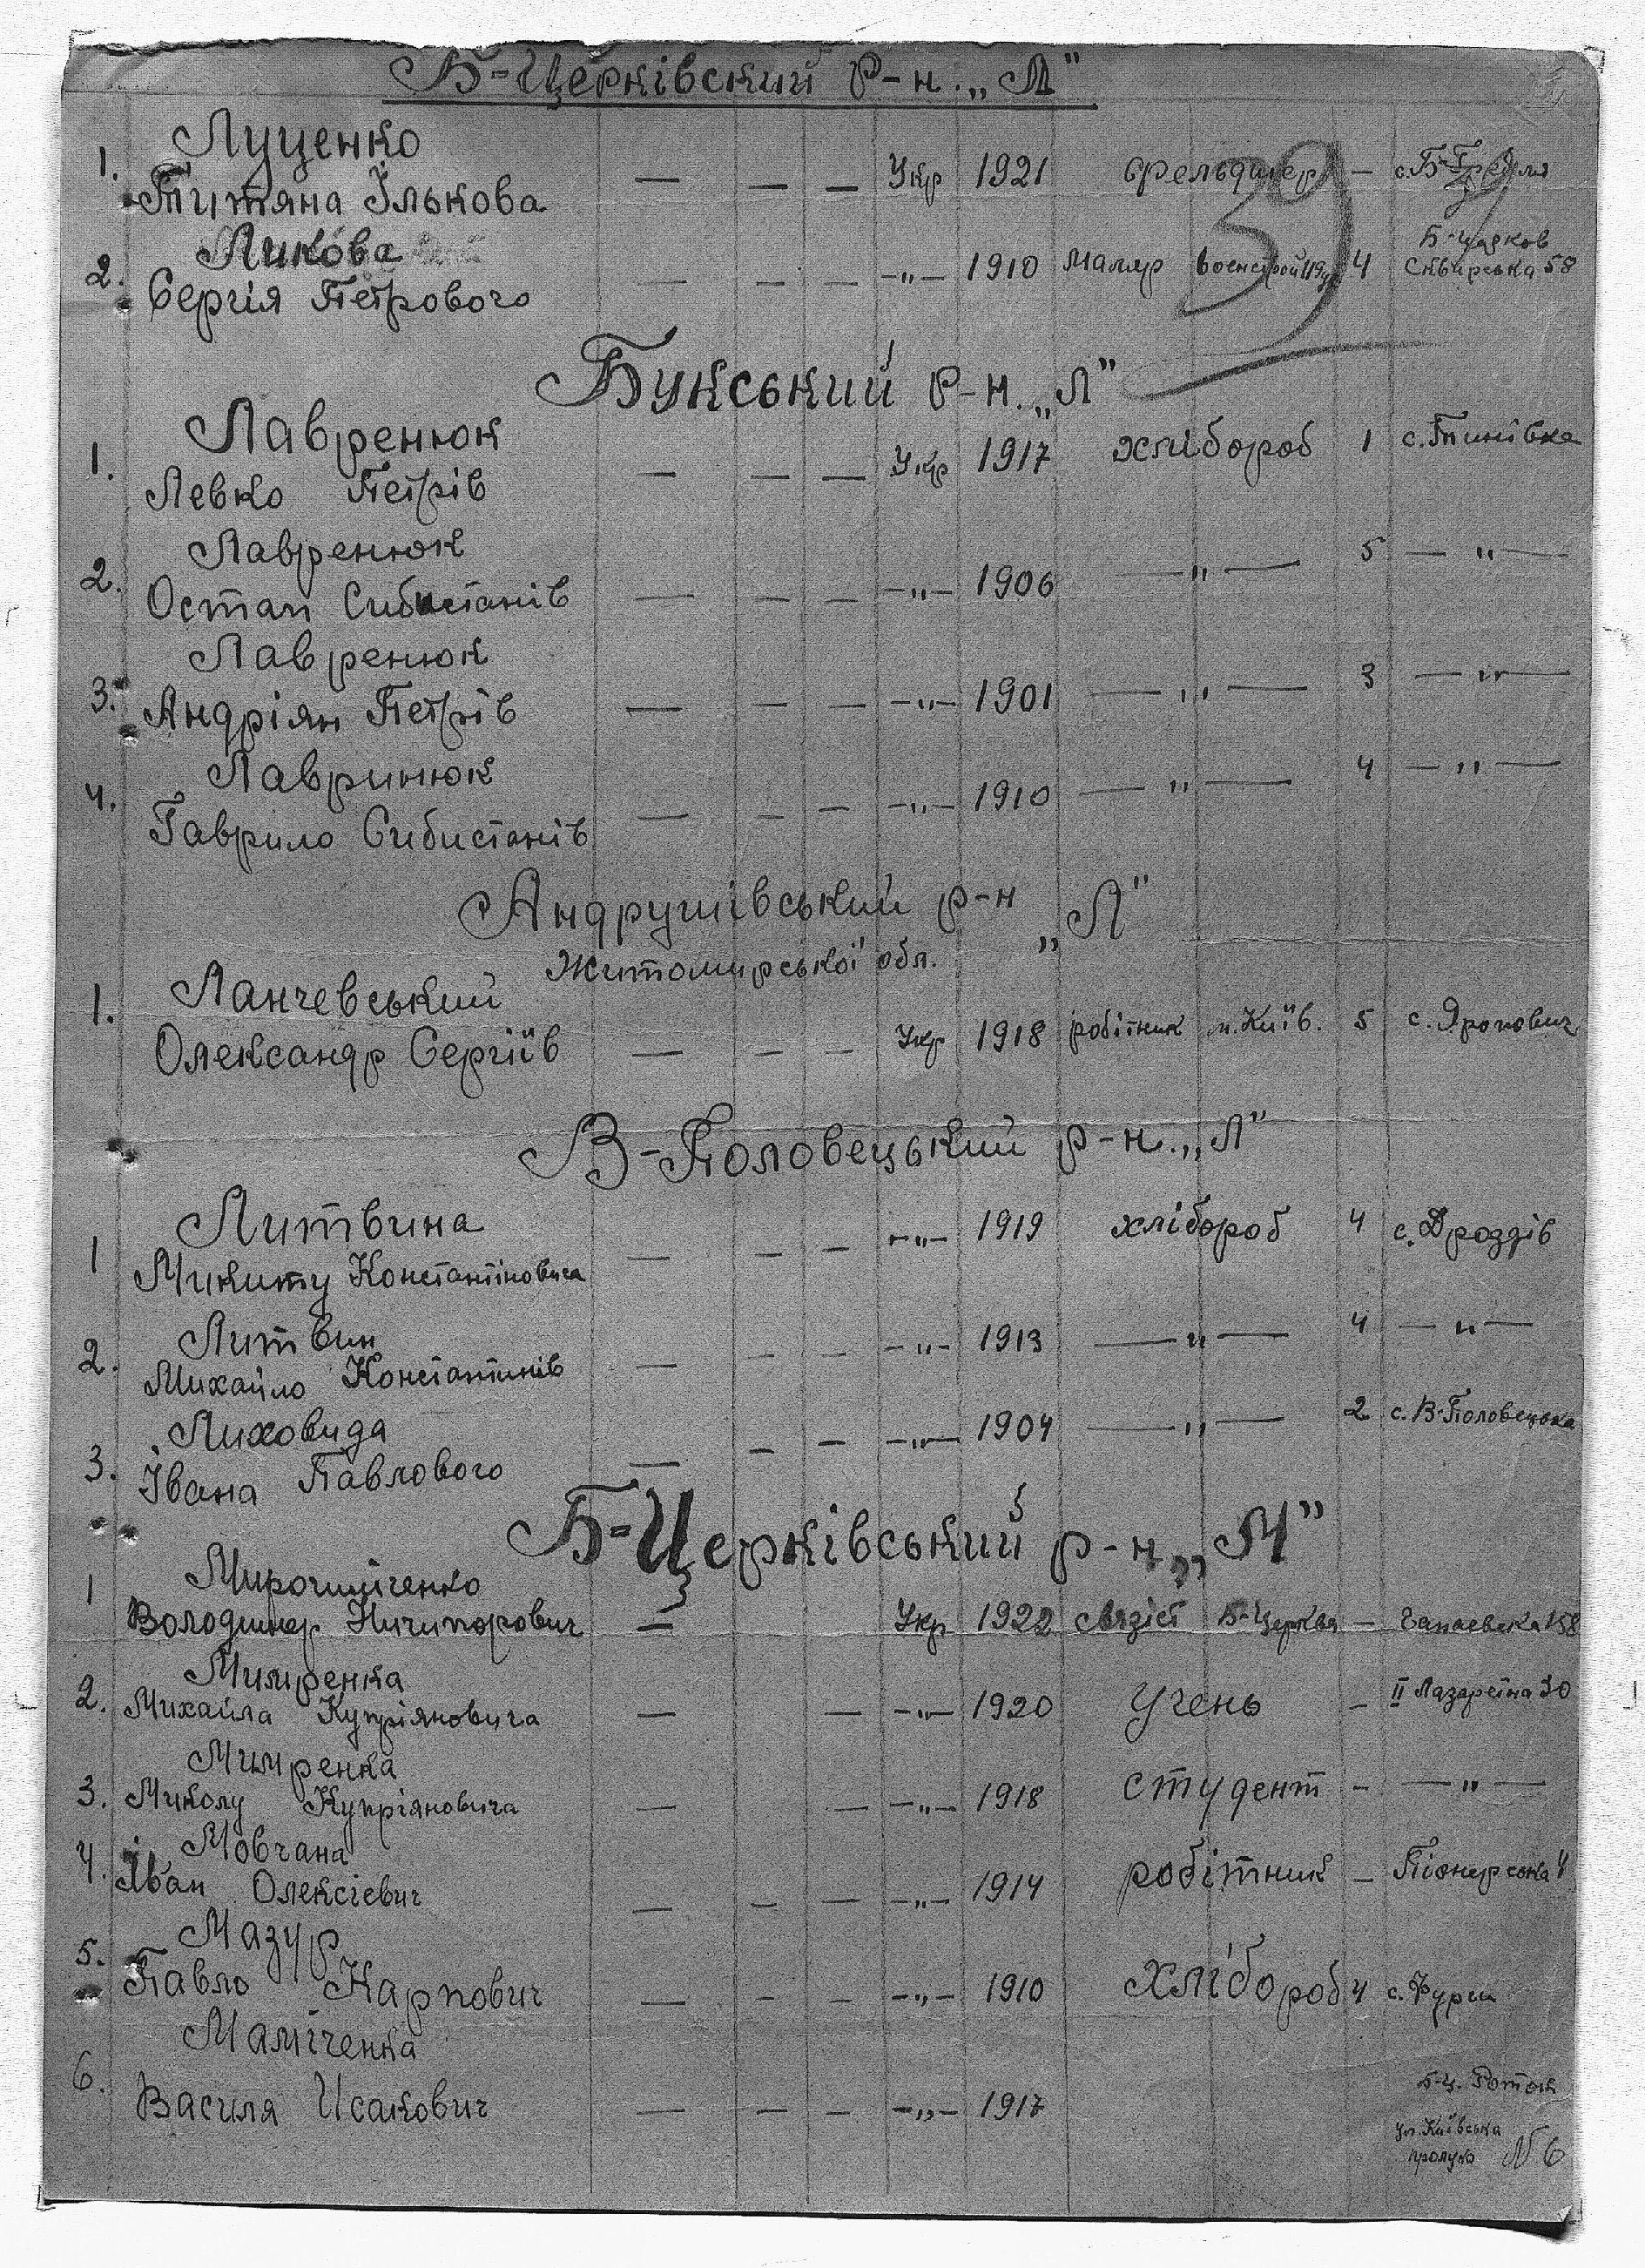 Б-Церківский р-н. „Л"
Луценко
1. Титяна Ількова — — — Укр 1921 фельдшер — с. Б-Гребля
39
Ликова
2. Сергія Петрового — — — —„— 1910 маляр Военстрой 4 Б-церков Сквирська 58
Букський р-н. „Л"
Лавренюк
1. Левко Петрів — — — Укр 1917 хлібороб 1 с. Тинівка
Лавренюк
2. Остап Сибистанів — — — —„— 1906 —„— 5 —„—
Лавренюк
3. Андріян Петрів — — — —„— 1901 —„— 3 —„—
Лавринюк
4. Гаврило Сибистанів — — — —„— 1910 —„— 4 —„—
Андрушівський р-н „Л"
Житомирської обл.
Ланчевський
1. Олександр Сергіїв — — — Укр 1918 робітник м. Київ. 5 с. Яропович
В-Половецький р-н. „Л"
Литвина
1 Микиту Константіновича — — — —„— 1919 хлібороб 4 с. Дроздів
Литвин
2. Михайло Константинів — — — —„— 1913 —„— 4 —„—
Лиховида
3. Івана Павлового — — — —„— 1904 —„— 2 с. В-Половецька
Б-Церківський р-н „М"
Мирошніченко
1 Володимер Ничипорович — Укр 1922 связіст Б-Церква — Чапаевска 158
Мимренка
2. Михайла Купріяновича — — —„— 1920 Учень — II Лазаретна 30
Мимренка
3. Миколу Купріяновича — — —„— 1918 студент - —„—
Мовчана
4. Іван Олексієвич — — — —„— 1914 робітник — Піонерська 4
Мазур
5. Павло Карпович — — — —„— 1910 Хлібороб 4 с. Фурси
Маміченка
6. Василя Исакович — — — —„— 1917 Б-Ц. Роток
ул. Київська
№ 6